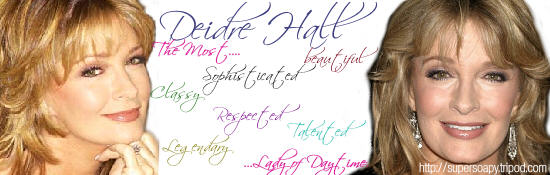 Deidre Hall
The Most....
beautiful
Sophisticated
Classy
Respected
Talented
Legendary
...Lady of Daytime
http://supersoapy.tripod.com